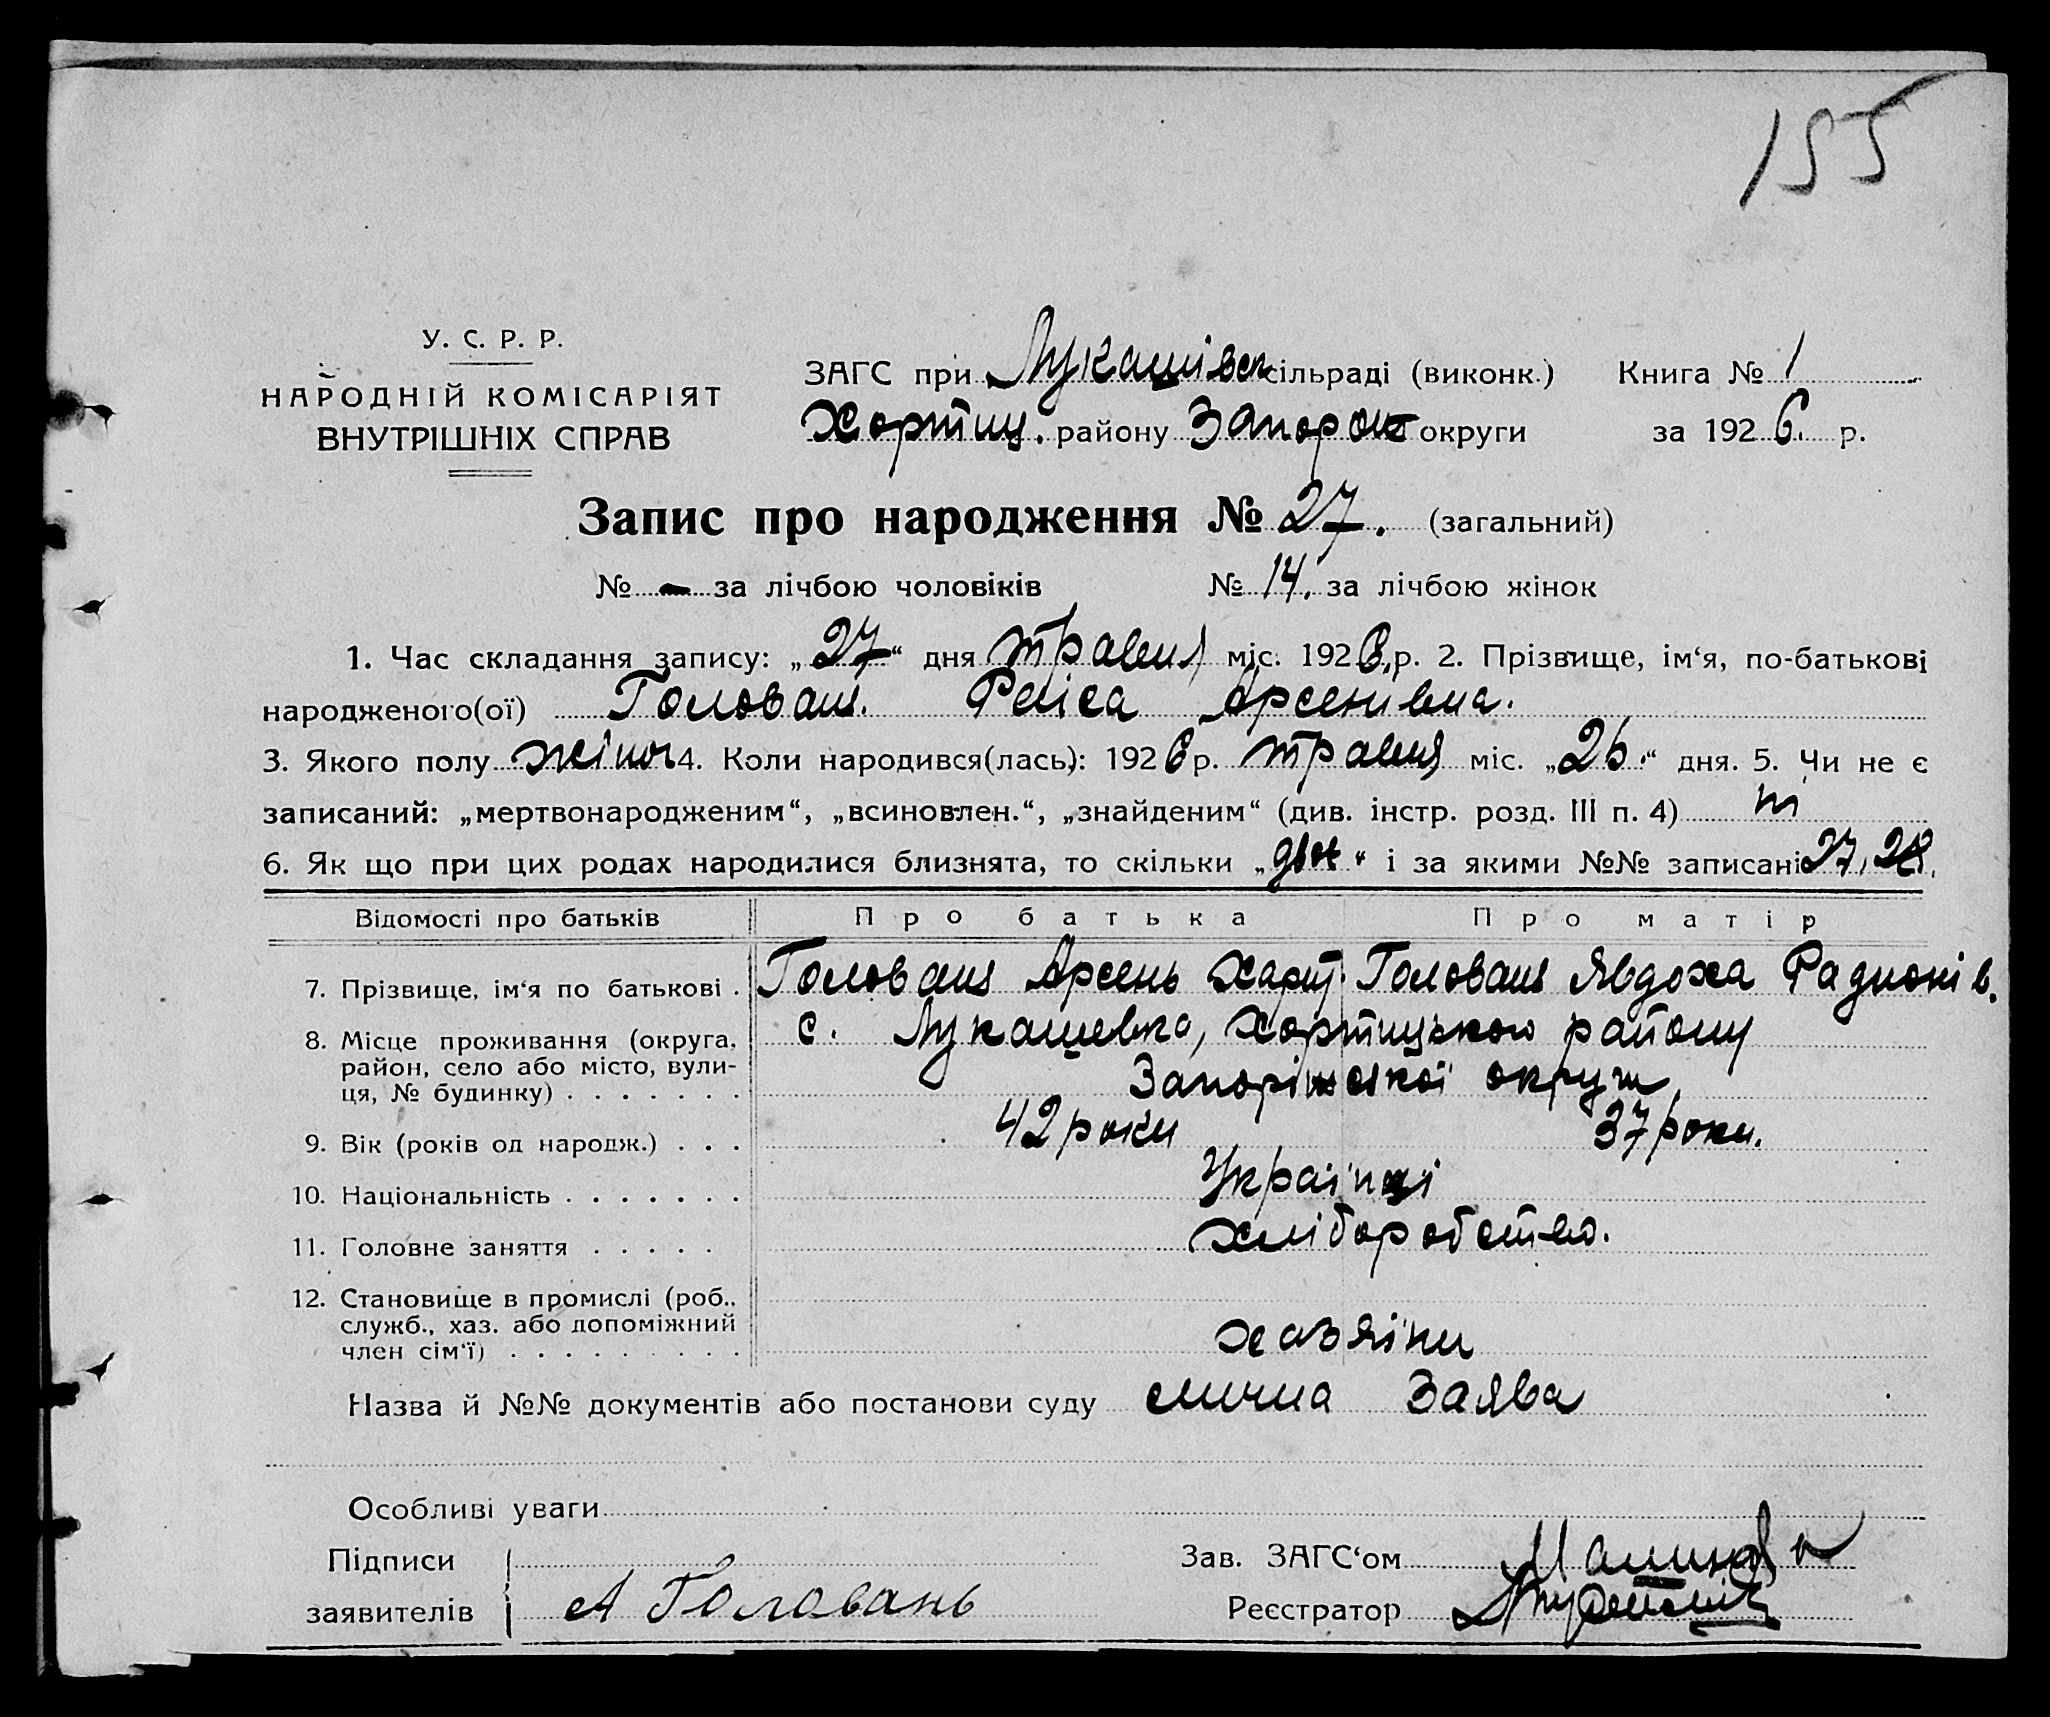 155
У. С. Р. Р.
НАРОДНІЙ КОМІСАРІЯТ
ВНУТРІШНІХ СПРАВ
ЗАГС при Лукашівск сільраді (виконк.) Книга № 1
Хортиц. району Запорож округи за 1926. р.
Запис про народження № 27. (загальний)
№ — за лічбою чоловіків № 14. за лічбою жінок
1. Час складання запису: „27“ дня травня міс. 1926 р. 2. Прізвище, ім‘я, по-батькові
народженого(ої) Головань. Раїса Арсенівна.
3. Якого полу жіноч 4. Коли народився(лась): 1926 р. травня міс. „26.“ дня. 5. Чи не є
записаний: „мертвонародженим“, „всиновлен.“, „знайденим“ (див. інстр. розд. III п. 4) ні
6. Як що при цих родах народилися близнята, то скільки „двоє“ і за якими №№ записані 27, 28.
Відомості про батьків Про батька Про матір
7. Прізвище, ім‘я по батькові . Головань Арсень Харит. Головань Явдоха Радионів.
8. Місце проживання (округа, с. Лукашевка, Хортицького району
район, село або місто, вули-
ця, № будинку) . . . . . . . Запоріжської округи
9. Вік (років од народж.) . . . 42 роки 37 роки.
10. Національність . . . . . . . Українці
11. Головне заняття . . . . . хліборобство.
12. Становище в промислі (роб.,
служб., хаз. або допоміжний
член сім‘ї) . . . . . . . . . хазяїни
Назва й №№ документів або постанови суду слична Заява
Особливі уваги
Підписи Зав. ЗАГС‘ом
заявителів А Головань Реєстратор